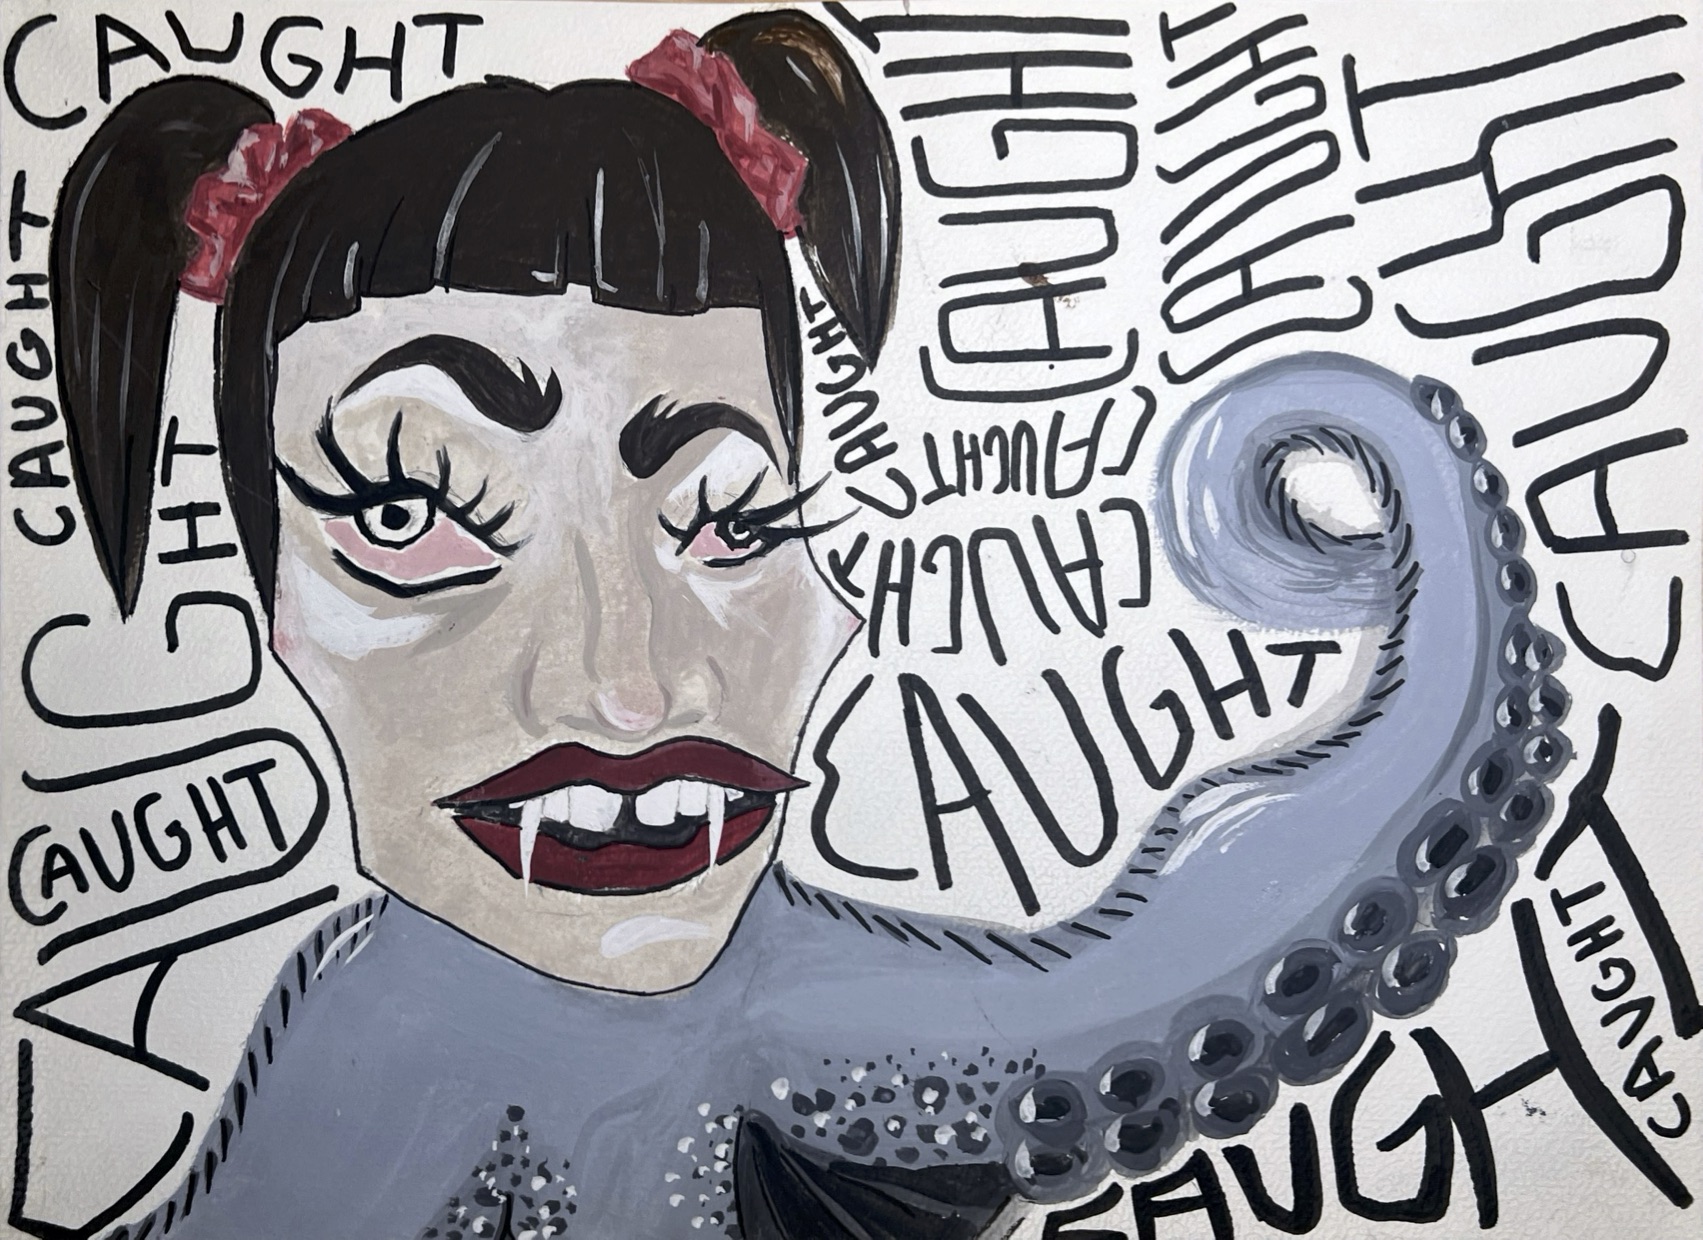 CAUGHT
CAUGHT
CAUGHT
CAUGHT
CAUGHT
CAUGHT
CAUGHT
CAUGHT
CAUGHT
CAUGHT
CAUGHT
CAUGHT
CAUGHT